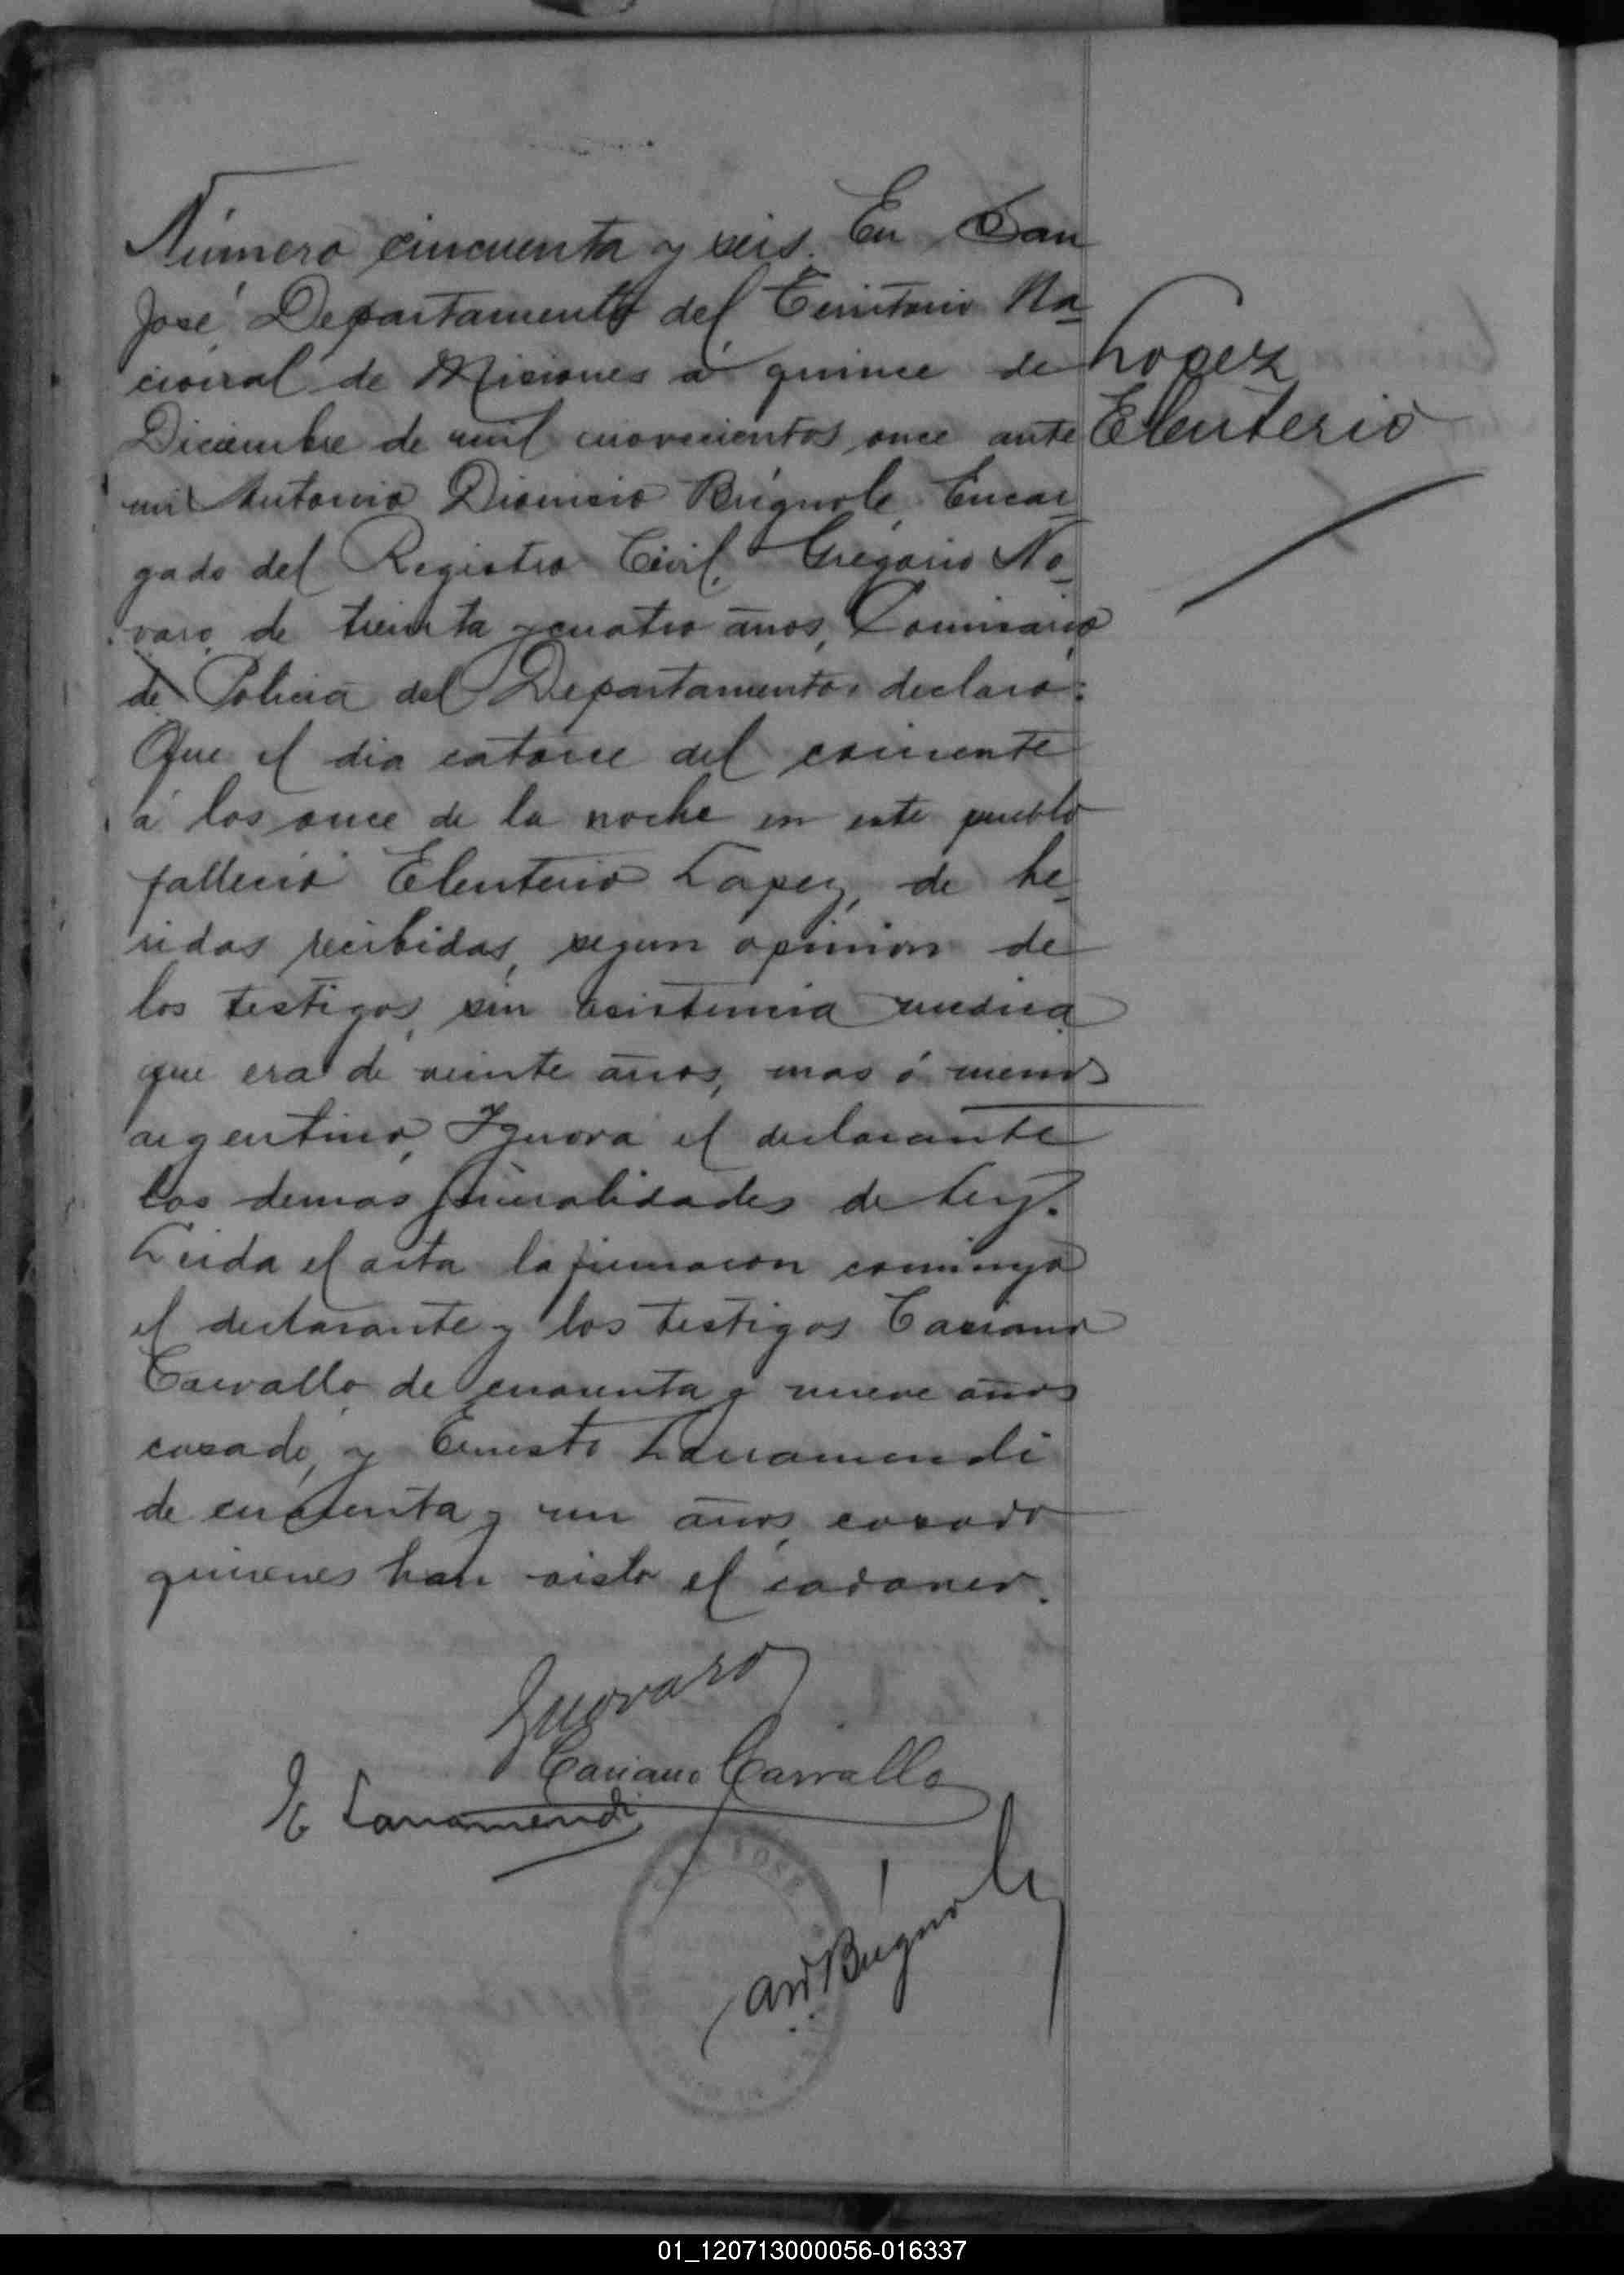 Número cincuenta y seis. En San
José, Departamento del Territorio Na-
cional de Misiones á quince de
Diciembre de mil novecientos once ante
mi Antonio Dionisio Brignole Encar-
gado del Registro Civil, Gregorio No-
varo, de treinta y cuatro años, Comisario
de Policia del Departamento, declaró:
Que el dia catorce del corriente
á las once de la noche en este pueblo
falleció Eleuterio Lopez, de he-
ridas recibidas, segun opinion de
los testigos, sin asistencia medica
que era de veinte años, mas ó menos
argentino, Ignora el declarante
las demas generalidades de ley.
Leida el acta la firmaron conmigo
el declarante y los testigos Casiano
Carvallo de cuarenta y nueve años
casado, y Ernesto Larramendi
de cuarenta y un años, casado
quienes han visto el cadaver.
Lopez
Eleuterio
GNovaro
Casiano Carvallo
E Larramendi
SAN JOSE
AD Brignole
01_120713000056-016337